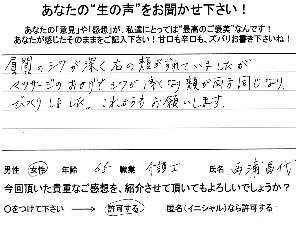 あなたの“生の声”をお聞かせ下さい!
あなたの「意見」や「感想」が、私達にとっては“最高のご褒美”なんです!
あなたが感じたそのままをご記入下さい!甘口も辛口も、ズバリお書き下さいね!
眉間のシワが深く右の頬が垂れていましたが
マッサージのおかげでシワが浅くなり頬が両方同じになり
びっくりしました。これからもお願いします。
男性 女性 年齢 65 職業 介護士 氏名 西浦昌代
今回頂いた貴重なご感想を、紹介させて頂いてもよろしいでしょうか?
○をつけて下さい → 許可する 匿名(イニシャル)なら許可する